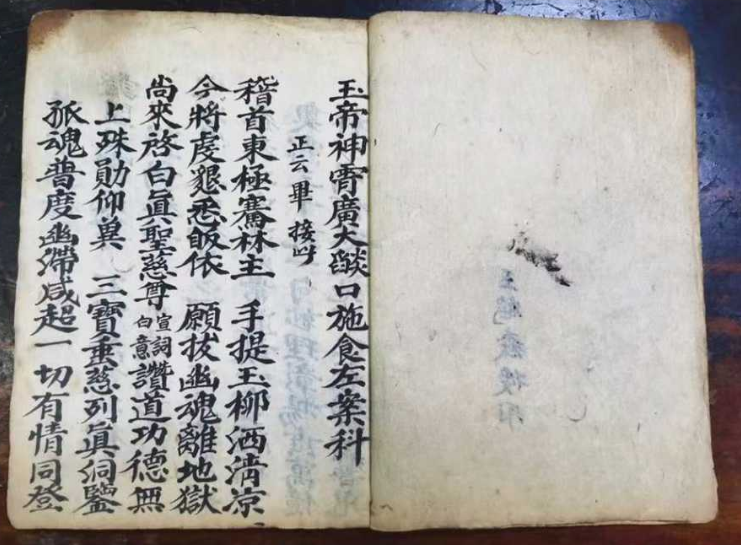 玉帝神霄廣大燄口施食左案科
正云畢 接此
稽首東極騫林主 手提玉柳洒清凉
今將虔懇悉皈依 願拔幽魂離地獄
尚來啓白眞聖慈尊宣詞白意讚道功德無
上殊勛仰冀 三寶垂慈列眞洞鑒
孤魂普度幽滯咸超一切有情同登